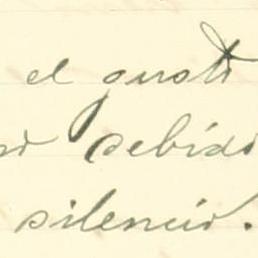 el gusto
debido
silencio.